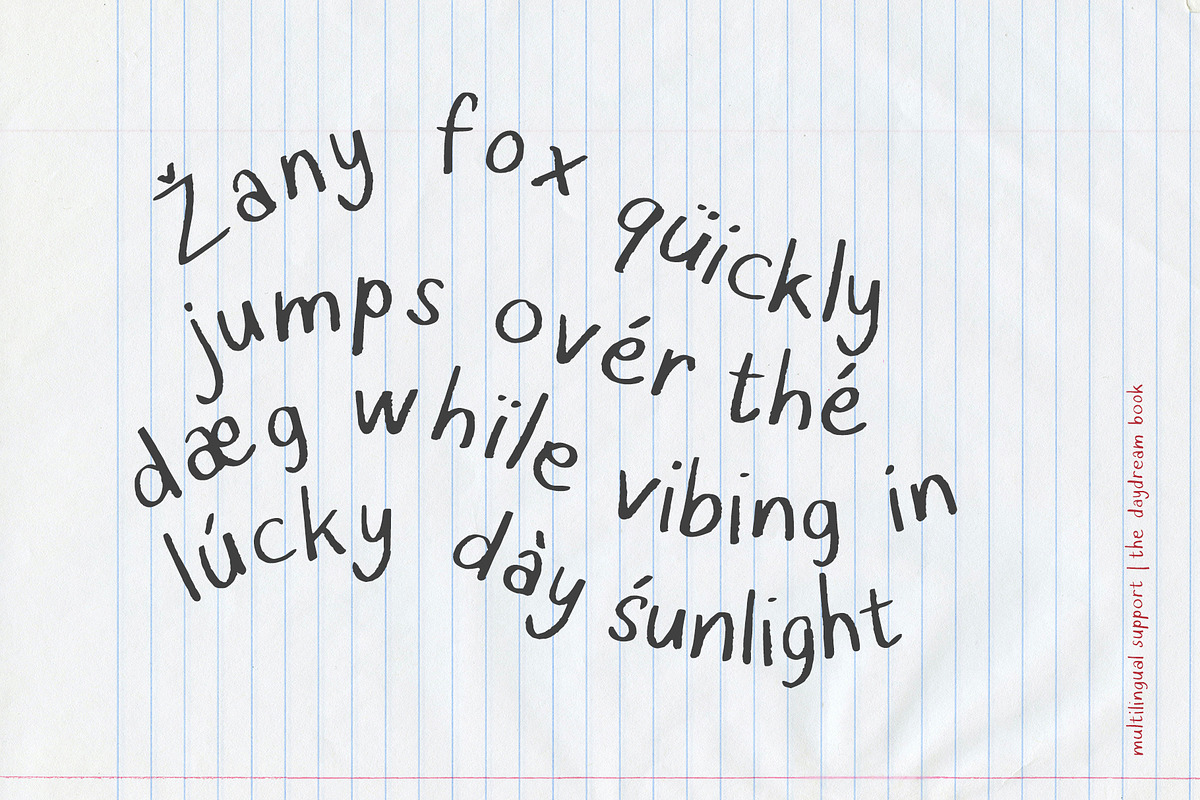 Žany fox qüickly
jumps ovér thé
dæg whïle vibing in
lúcky dày śunlight
multilingual support | the daydream book